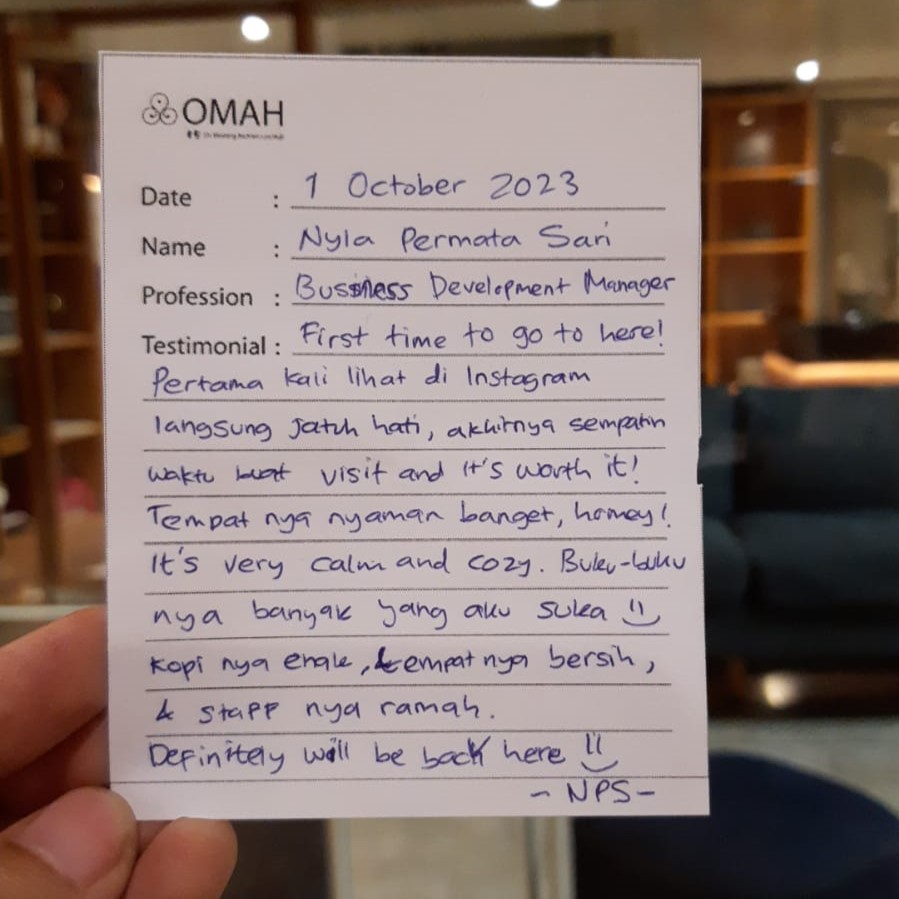 OMAH
Date : 1 October 2023
Name : Nyla Permata Sari
Profession : Business Development Manager
Testimonial : First time to go to here!
Pertama kali lihat di Instagram
langsung jatuh hati, akhirnya sempatin
waktu buat visit and it's worth it!
Tempat nya nyaman banget, homey!
It's very calm and cozy. Buku-buku
nya banyak yang aku suka
kopi nya enak, tempat nya bersih,
& staff nya ramah.
Definitely will be back here
- NPS -